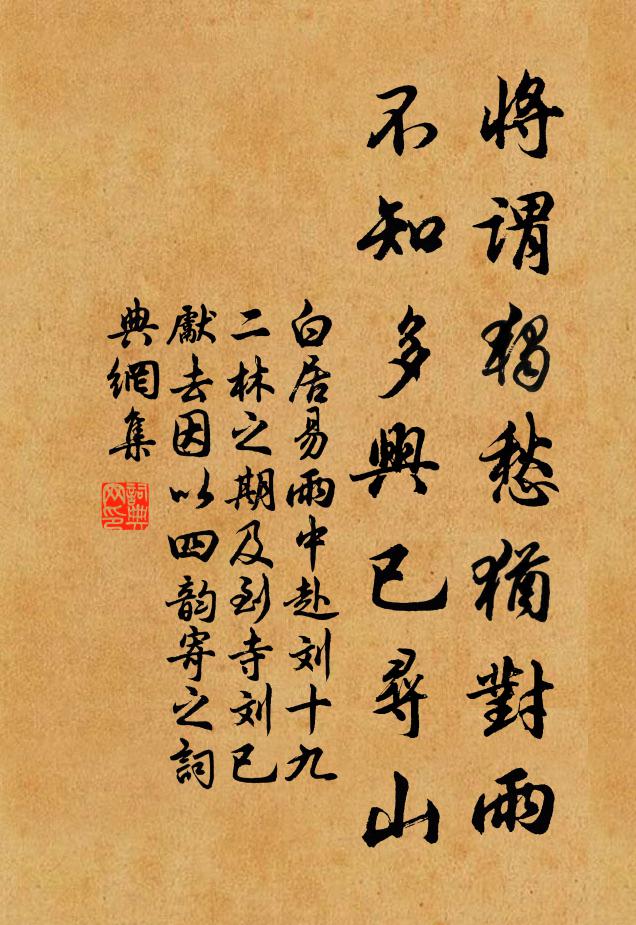 將謂獨愁猶對雨
不知多興已尋山
白居易雨中赴刘十九
二林之期及到寺刘已
獻去因以四韵寄之詞
典網集
詞典
网印